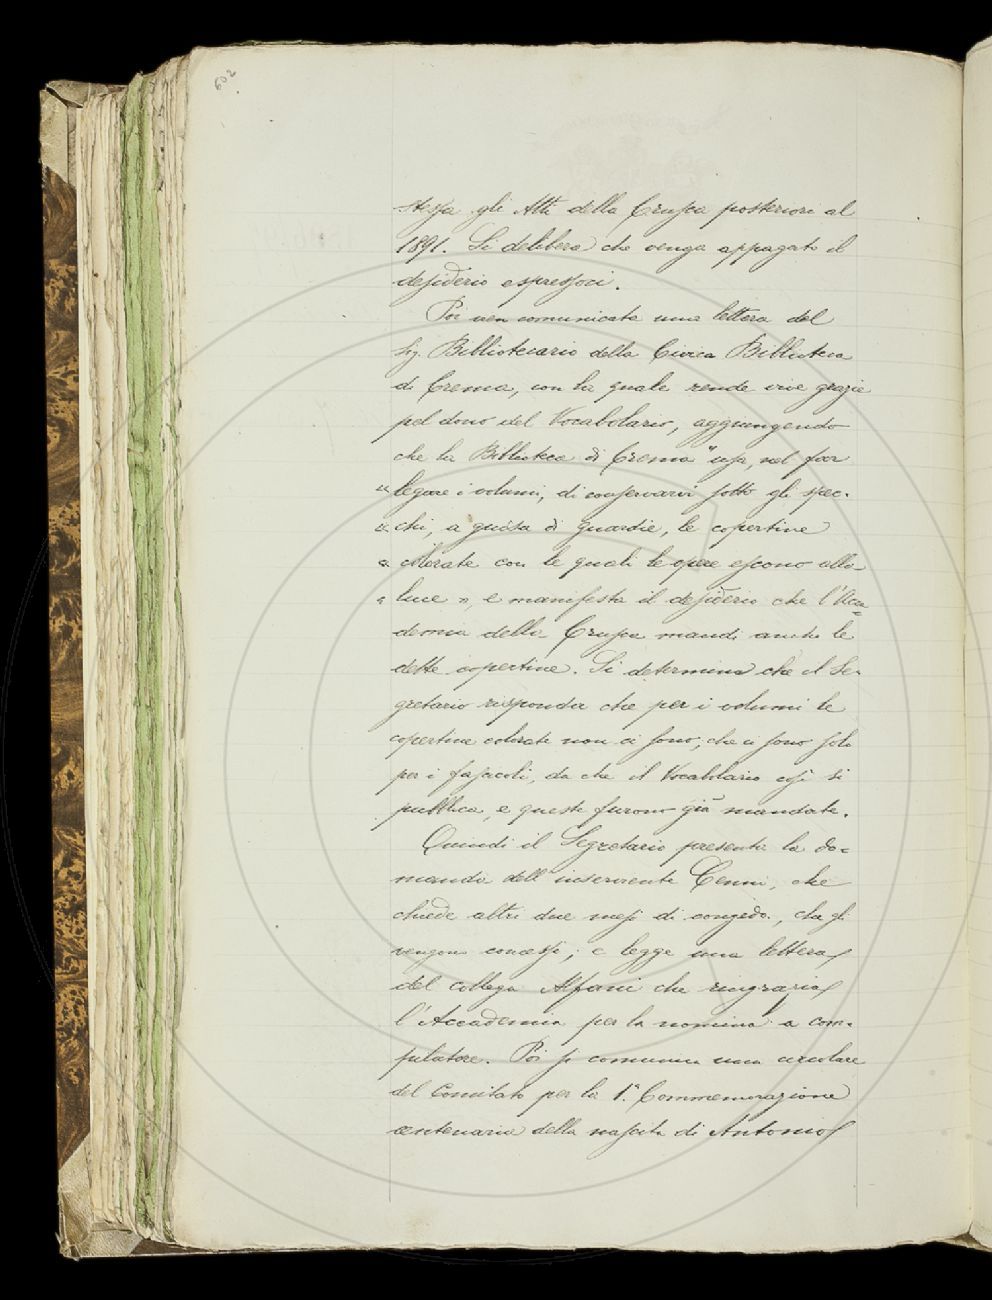 602
stessa gli Atti della Crusca posteriori al
1891. Si delibera che venga appagato il
desiderio espressoci.
Poi vien comunicata una lettera del
Sig. Bibliotecario della Civica Biblioteca
di Crema, con la quale rende vive grazie
pel dono del Vocabolario, aggiungendo
che la Biblioteca di Crema "usa, nel far
" legare i volumi, di conservarvi sotto gli spec-
" chi, a guisa di guardie, le copertine
" colorate con le quali le opere escono alla
" luce », e manifesta il desiderio che l'Acca=
demia della Crusca mandi anche le
dette copertine. Si determina che il Se-
gretario risponda che per i volumi le
copertine colorate non ci sono; che ci sono solo
per i fascicoli, da che il Vocabolario così si
pubblica, e queste furono già mandate.
Quindi il Segretario presenta la do=
manda dell'inserviente Cenni, che
chiede altri due mesi di congedo, che gli
vengono concessi; e legge una lettera
del collega Alfani che ringrazia
l'Accademia per la nomina a Com-
pilatore. Poi si comunica una circolare
del Comitato per la 1.ª Commemorazione
centenaria della nascita di Antonio